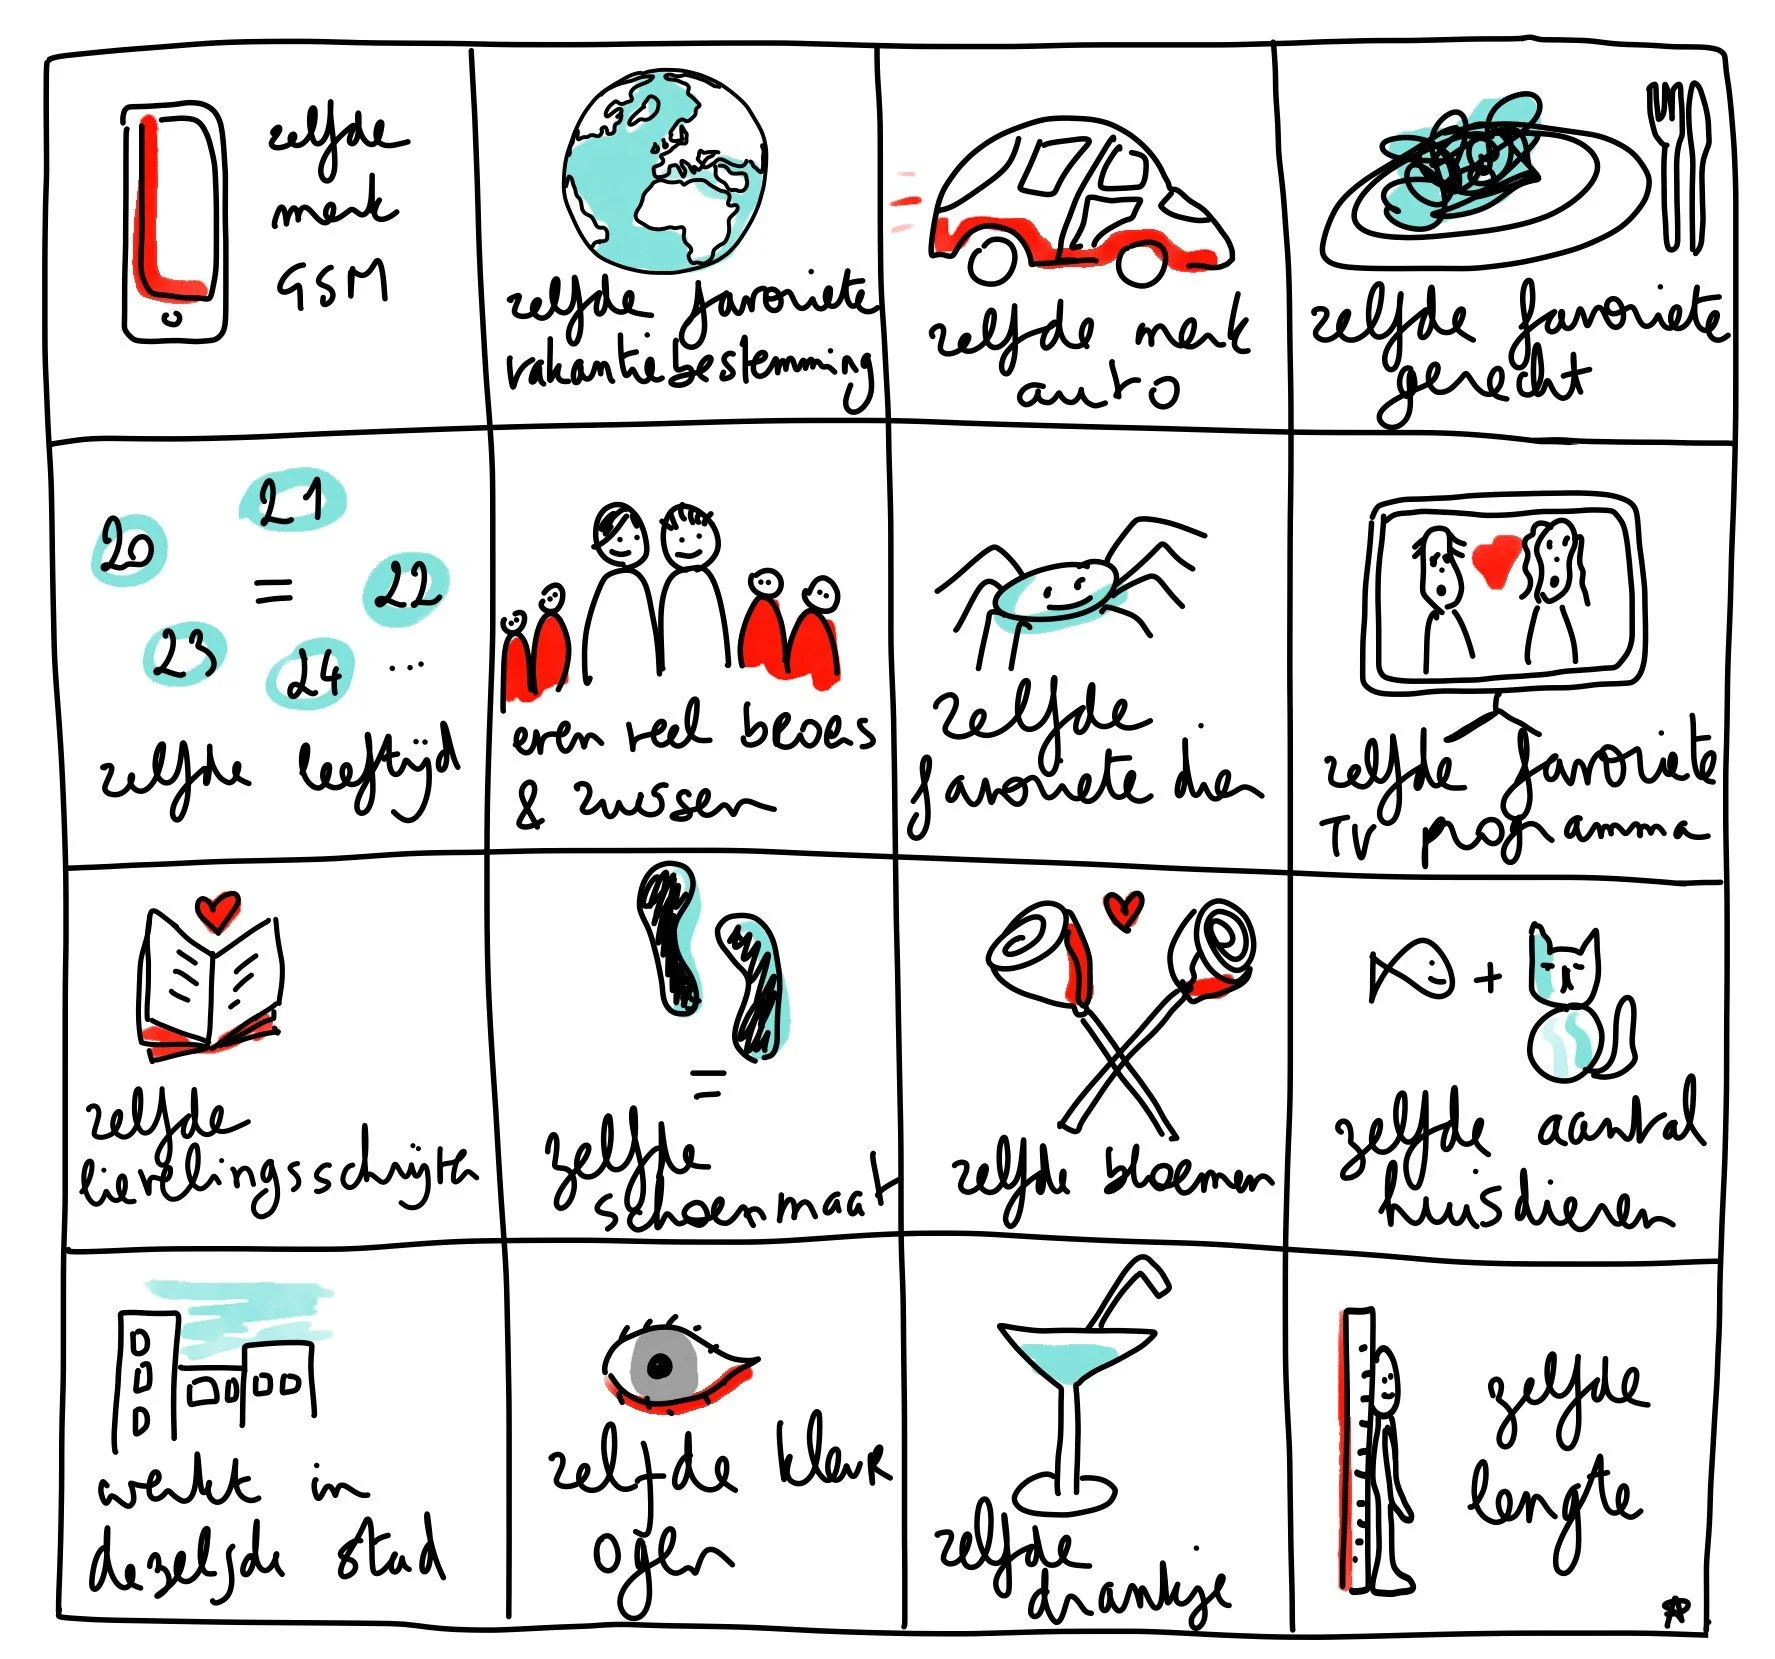 zelfde
merk
GSM
zelfde favoriete
vakantiebestemming
zelfde merk
auto
zelfde favoriete
gerecht
20
21
=
22
23
24 ...
zelfde leeftijd
even veel broers
& zussen
zelfde
favoriete dier
zelfde favoriete
TV programma
zelfde
lievelingsschrijver
=
zelfde
schoenmaat
zelfde bloemen
+
zelfde aantal
huisdieren
werkt in
dezelfde stad
zelfde kleur
ogen
zelfde
drankje
zelfde
lengte